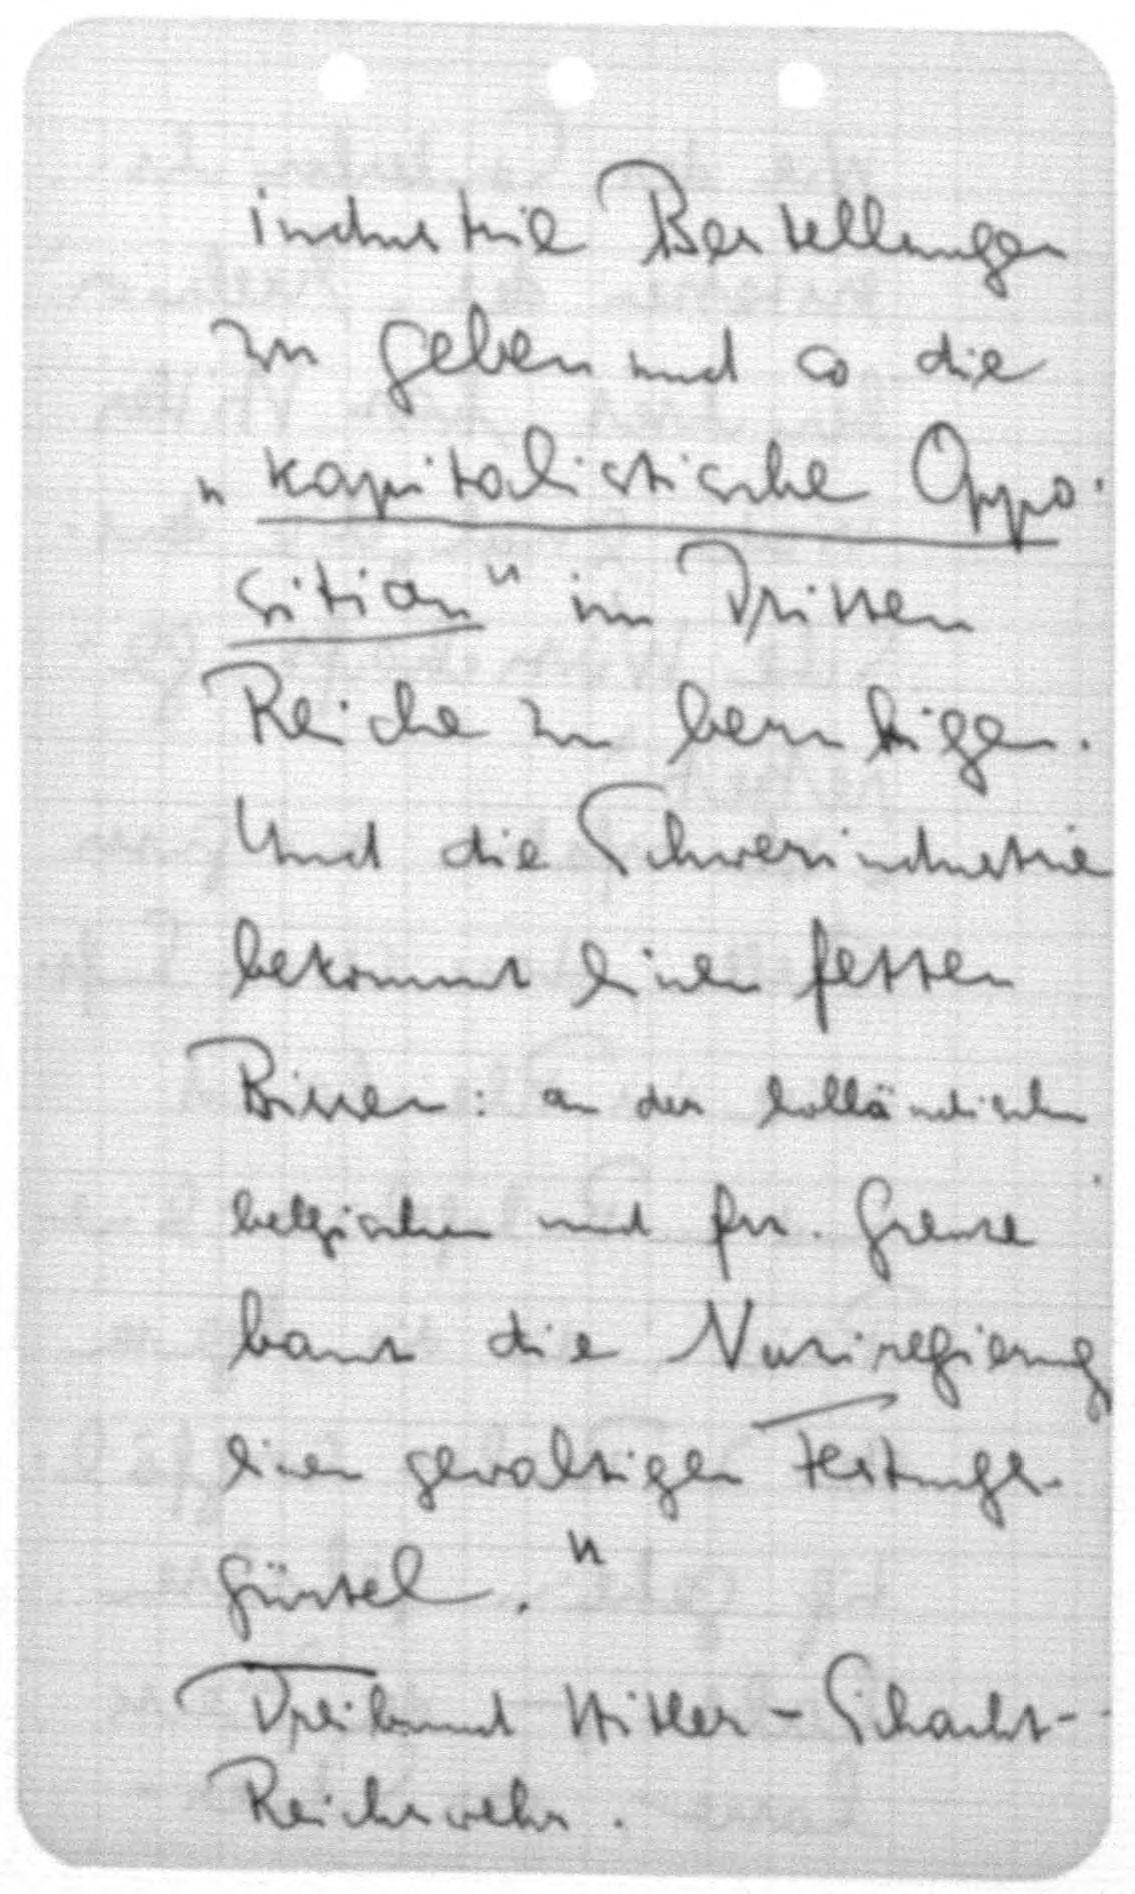 industrie Bestellungen
zu geben und so die
„kapitalistische Oppo-
sition" im Dritten
Reiche zu beruhigen.
Und die Schwerindustrie
bekommt einen fetten
Bissen: an der holländischen
belgischen und frz. Grenze
baut die Naziregierung
einen gewaltigen Festungs-
gürtel."
Dreibund Hitler - Schacht -
Reichswehr.